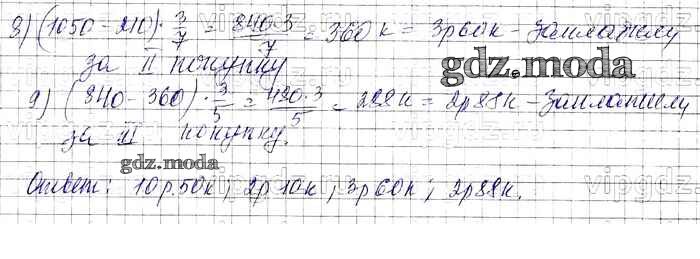 8) (1050 - 210) · 3/7 = 840·3/7 = 360 к = 3р 60к - заплатили
за II покупку
gdz.moda
9) (840 - 360) · 3/5 = 480·3/5 = 288к = 2р 88к - заплатили
за III покупку.
gdz.moda
Ответ: 10р.50к; 2р 10к; 3р 60к; 2р 88к.